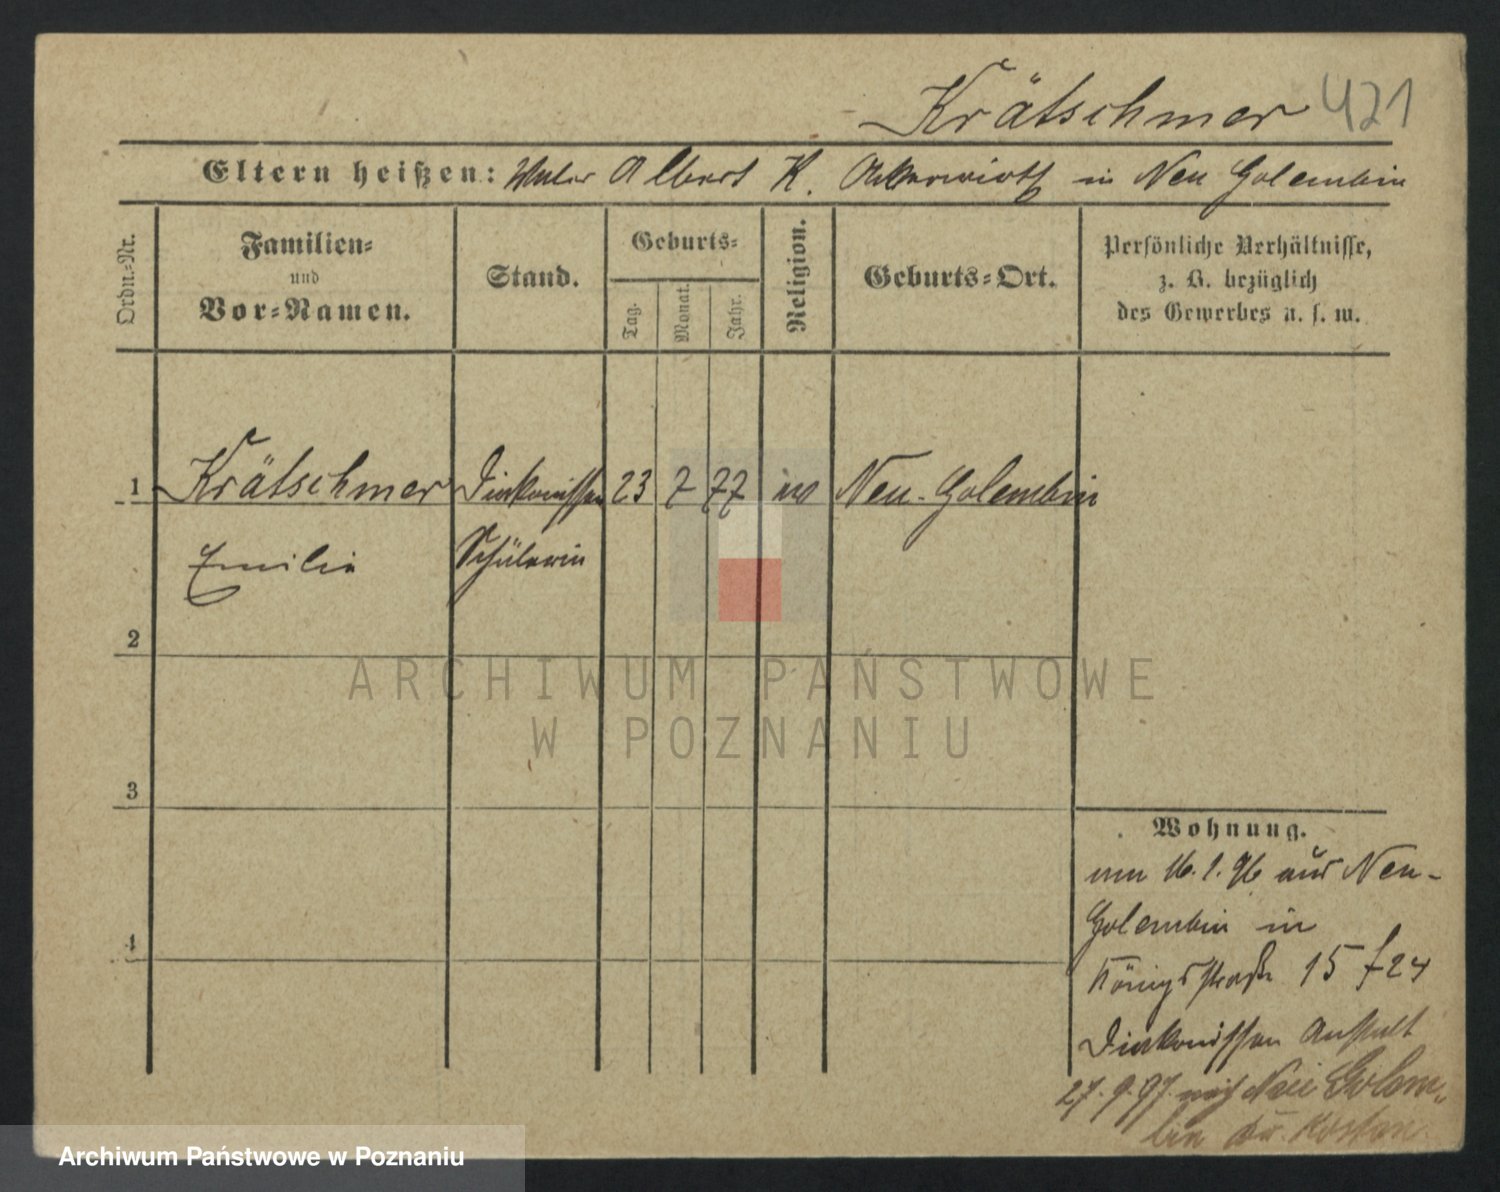 Krätschmer 421
Eltern heißen: Vater Albert K. Ackerwirth in Neu Golembin
Ordn.-Nr.
Familien-
und
Vor-Namen.
Stand.
Geburts-
Tag.
Monat.
Jahr.
Religion.
Geburts-Ort.
Persönliche Verhältnisse,
z. B. bezüglich
des Gewerbes u. s. w.
1 Krätschmer Diakonissen 23 7 77 ev Neu-Golembin
Emilie Schülerin
2
3
4
Wohnung.
vom 16.1.96 aus Neu-
Golembin in
Königsstraße 15 f 24
Diakonissen Anstalt
27.9.97 nach Neu Golem-
bin Kr. Kosten
ARCHIWUM PAŃSTWOWE
W POZNANIU
Archiwum Państwowe w Poznaniu